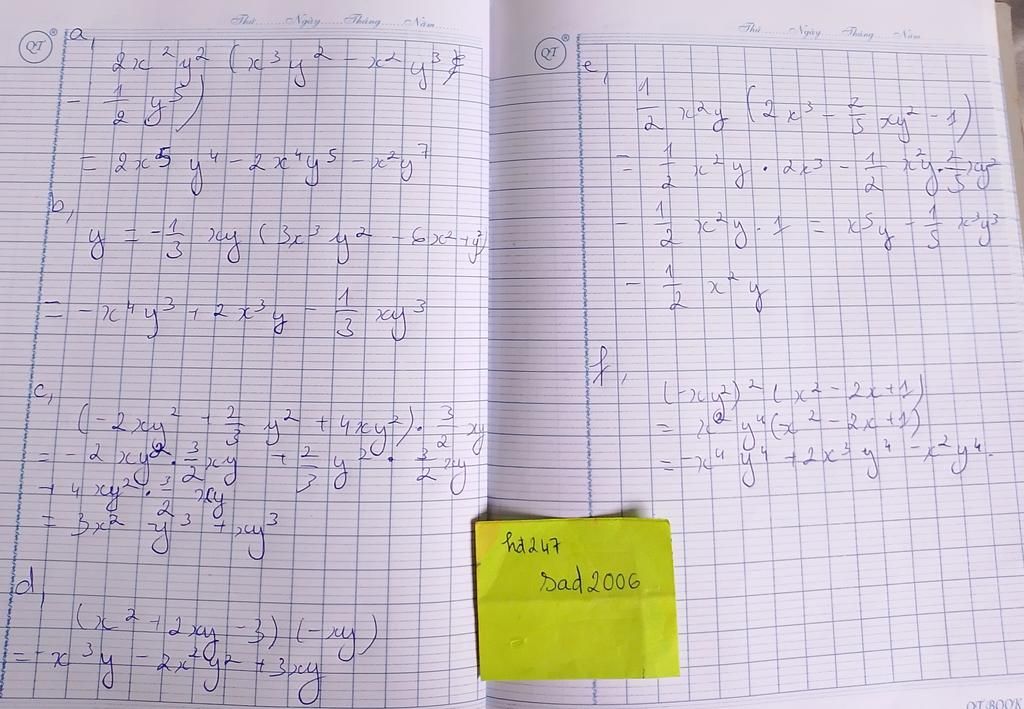 Thứ Ngày Tháng Năm
QT
a,
2x²y² (x³y² - x²y³
- 1/2 y⁵)
= 2x⁵y⁴ - 2x⁴y⁵ - x²y⁷
b,
y = -1/3 xy (3x³y² - 6x² + y²)
= -x⁴y³ + 2x³y - 1/3 xy³
c,
(-2xy² + 2/3 y² + 4xy²) · 3/2 xy
= -2xy² · 3/2 xy + 2/3 y² · 3/2 xy
+ 4xy² · 3/2 xy
= 3x² y³ + xy³
d,
(x² + 2xy - 3) (-xy)
= -x³y - 2x²y² + 3xy
Thứ Ngày Tháng Năm
QT
e,
1/2 x²y (2x³ - 2/5 xy² - 1)
= 1/2 x²y · 2x³ - 1/2 x²y · 2/5 xy²
- 1/2 x²y · 1 = x⁵y - 1/5 x³y³
- 1/2 x²y
f,
(-xy²)² (x² - 2x + 1)
= x²y⁴(x² - 2x + 1)
= -x⁴y⁴ + 2x³y⁴ - x²y⁴.
hd247
sad2006
QT BOOK